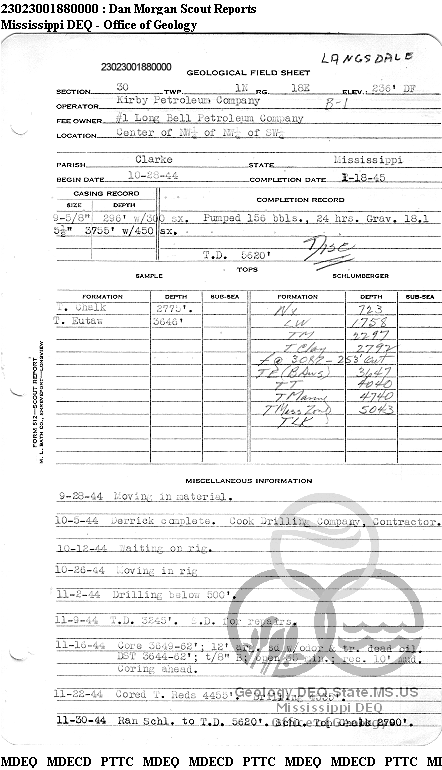 23023001880000 : Dan Morgan Scout Reports
Mississippi DEQ - Office of Geology
LANGSDALE
23023001880000
GEOLOGICAL FIELD SHEET
SECTION 30 TWP. 1N RG. 18E ELEV. 236' DF
OPERATOR Kirby Petroleum Company B-1
FEE OWNER #1 Long Bell Petroleum Company
LOCATION Center of NW¼ of NW¼ of SW¼
PARISH Clarke STATE Mississippi
BEGIN DATE 10-28-44 COMPLETION DATE 1-18-45
CASING RECORD COMPLETION RECORD
SIZE DEPTH
9-5/8" 296' w/300 sx. Pumped 156 bbls., 24 hrs. Grav. 18.1
5½" 3755' w/450 sx.
T.D. 5620' Disc
TOPS
SAMPLE SCHLUMBERGER
FORMATION DEPTH SUB-SEA FORMATION DEPTH SUB-SEA
T. Chalk 2775'. NX 723
T. Eutaw 3646' LW 1758
TM 2297
T Clay 2792
f @ 3087 - 258' Cut
TE 3647
TT 4040
T Marine 4740
T Mass Zone 5043
TLK
FORM 512—SCOUT REPORT
M. L. BATH CO., SHREVEPORT—LONGVIEW
MISCELLANEOUS INFORMATION
9-28-44 Moving in material.
10-5-44 Derrick complete. Cook Drilling Company, Contractor.
10-12-44 Waiting on rig.
10-26-44 Moving in rig
11-2-44 Drilling below 500'.
11-9-44 T.D. 3245'. S.D. for repairs.
11-16-44 Core 3649-62'; 12' arg. sd w/odor & tr. dead oil.
DST 3644-62'; t/8" B; open min.; rec. 10' mud.
Coring ahead.
11-22-44 Cored T. Reds 4455'; Drilling
Geology.DEQ.State.MS.US
Mississippi DEQ
Office of Geology
11-30-44 Ran Schl. to T.D. 5620'. Schl. Top Chalk 2790'.
MDEQ MDECD PTTC MDEQ MDECD PTTC MDEQ MDECD PTTC MI